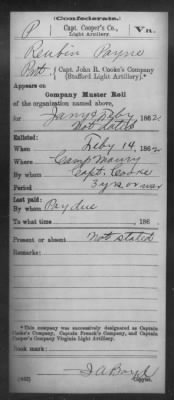 (Confederate.)
P Capt. Cooper's Co., Va.
Light Artillery.
Reubin Payne
Pvt., Capt. John R. Cooke's Company
(Stafford Light Artillery).*
Appears on
Company Muster Roll
of the organization named above,
for Jany & Feby, 1862.
Not dated
Enlisted:
When Feby 14, 1862
Where Camp Maury
By whom Capt. Cooke
Period 3 yrs or war
Last paid:
By whom Pay due
To what time , 186
Present or absent Not stated
Remarks:
*This company was successively designated as Captain
Cooke's Company, Captain French's Company, and Captain
Cooper's Company Virginia Light Artillery.
Book mark:
J A Boyd
(642) Copyist.